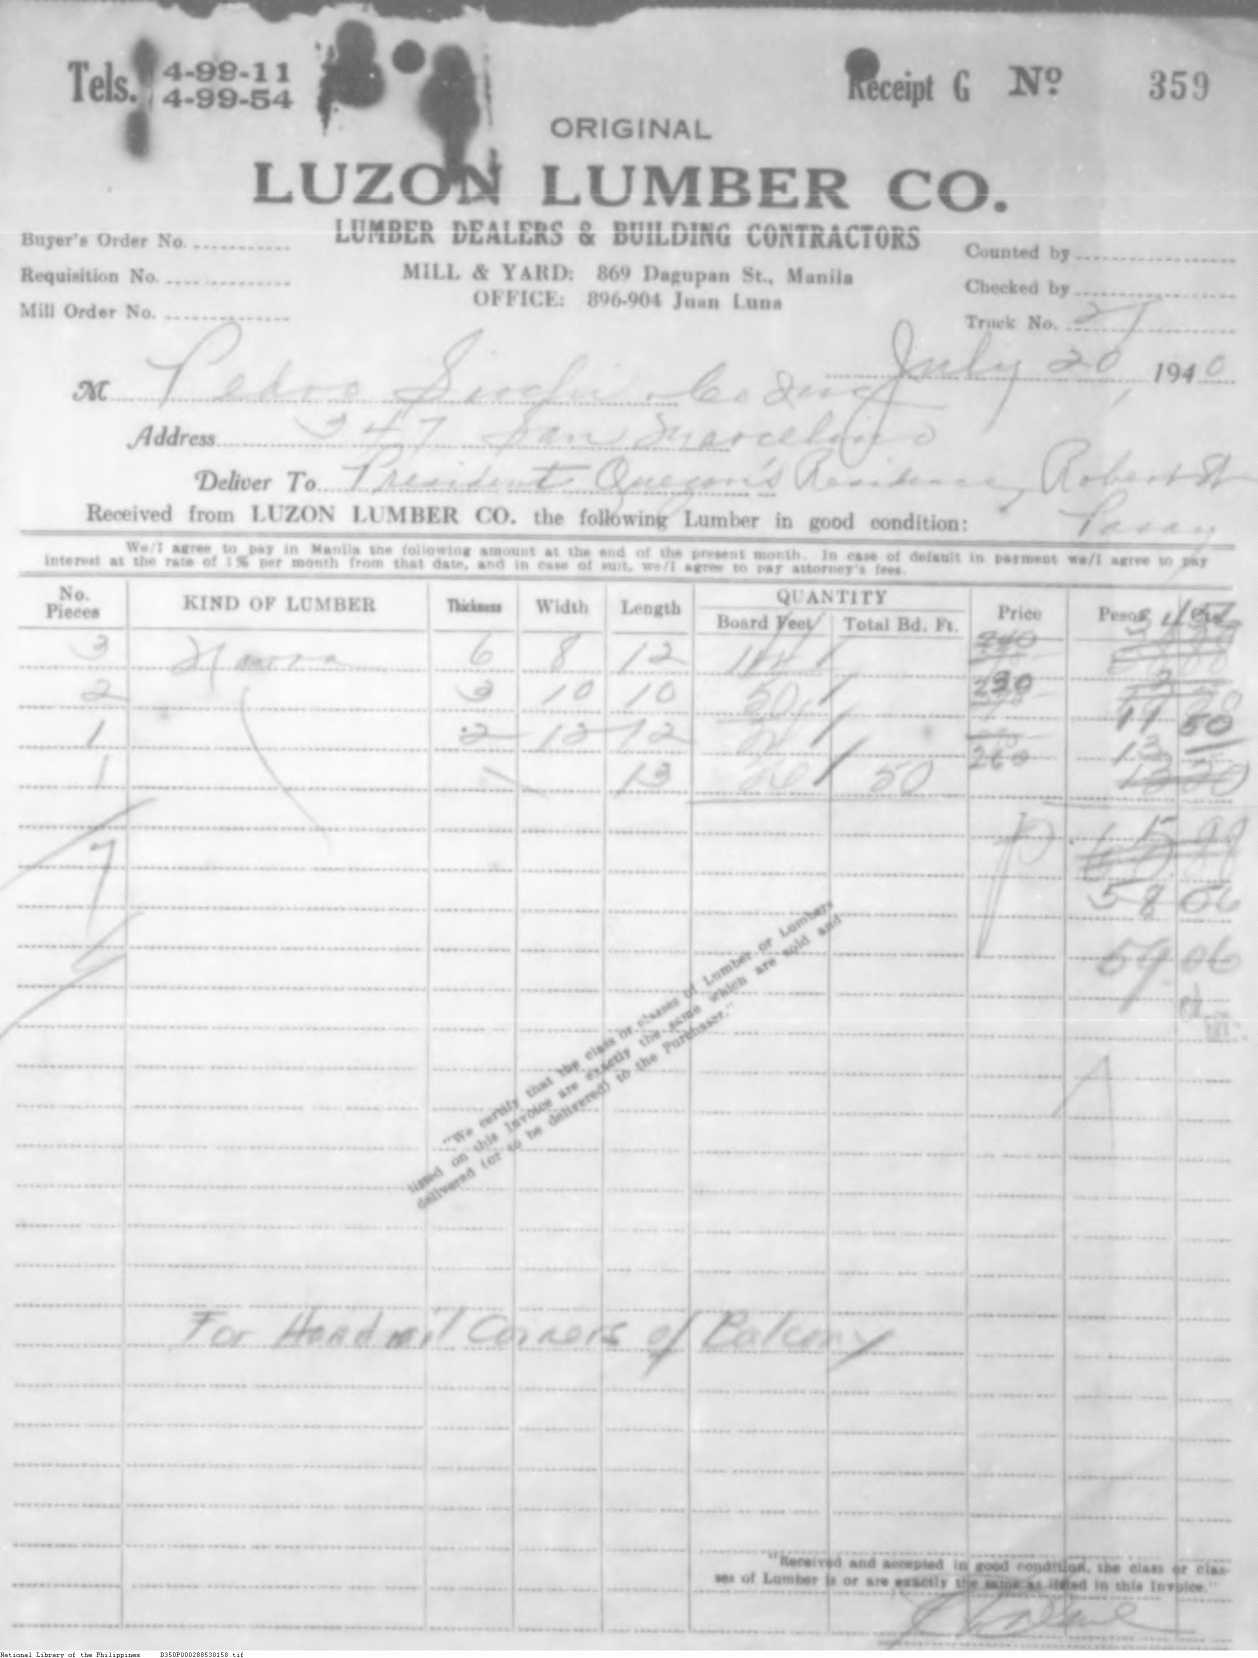 Tels. 4-99-11
4-99-54
Receipt G No 359
ORIGINAL
LUZON LUMBER CO.
LUMBER DEALERS & BUILDING CONTRACTORS
MILL & YARD: 869 Dagupan St., Manila
OFFICE: 896-904 Juan Luna
Buyer's Order No.
Requisition No.
Mill Order No.
Counted by
Checked by
Truck No. 27
July 20, 1940
M Pedro Siochi & Co Inc
Address 347 San Marcelino
Deliver To President Quezon's Residence, Robert St
Pasay
Received from LUZON LUMBER CO. the following Lumber in good condition:
We/I agree to pay in Manila the following amount at the end of the present month. In case of default in payment we/I agree to pay
interest at the rate of 1% per month from that date, and in case of suit, we/I agree to pay attorney's fees.
No. Pieces KIND OF LUMBER Thickness Width Length QUANTITY Price Pesos
Board Feet Total Bd. Ft.
3 Narra 6 8 12 144 240
2 3 10 10 50 230 11 50
1 2 12 12 24
1 13 26 50 260
7
58 06
59 06
"We certify that the class or classes of Lumber or Lumbers
listed on this Invoice are exactly the same which are sold and
delivered (or to be delivered) to the Purchaser."
For Handrail Corners of Balcony
"Received and accepted in good condition, the class or clas-
ses of Lumber is or are exactly the same as listed in this Invoice."
National Library of the Philippines